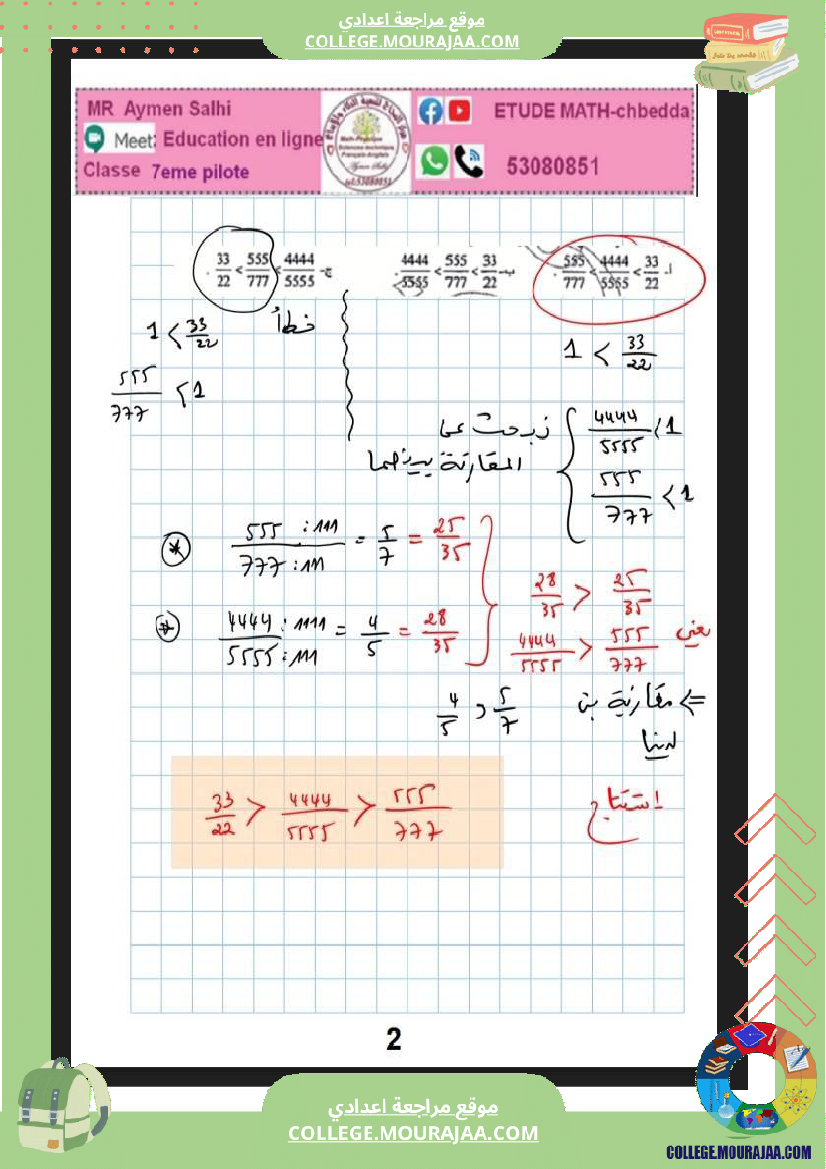 موقع مراجعة اعدادي
COLLEGE.MOURAJAA.COM
MR Aymen Salhi
Meet: Education en ligne
Classe 7eme pilote
ETUDE MATH-chbedda
53080851
أ- 555/777 < 4444/5555 < 33/22 .
ب- 4444/5555 < 555/777 < 33/22 .
ج- 33/22 < 555/777 < 4444/5555 .
خطأ
1 < 33/22
555/777 < 1
1 < 33/22
4444/5555 < 1
555/777 < 1
المقارنة بينهما
555 : 111 / 777 : 111 = 5/7 = 25/35
4444 : 1111 / 5555 : 111 = 4/5 = 28/35
28/35 > 25/35
يعني 4444/5555 > 555/777
<= مقارنة بين
4/5 > 5/7
لدينا
استنتاج
33/22 > 4444/5555 > 555/777
2
موقع مراجعة اعدادي
COLLEGE.MOURAJAA.COM
COLLEGE.MOURAJAA.COM